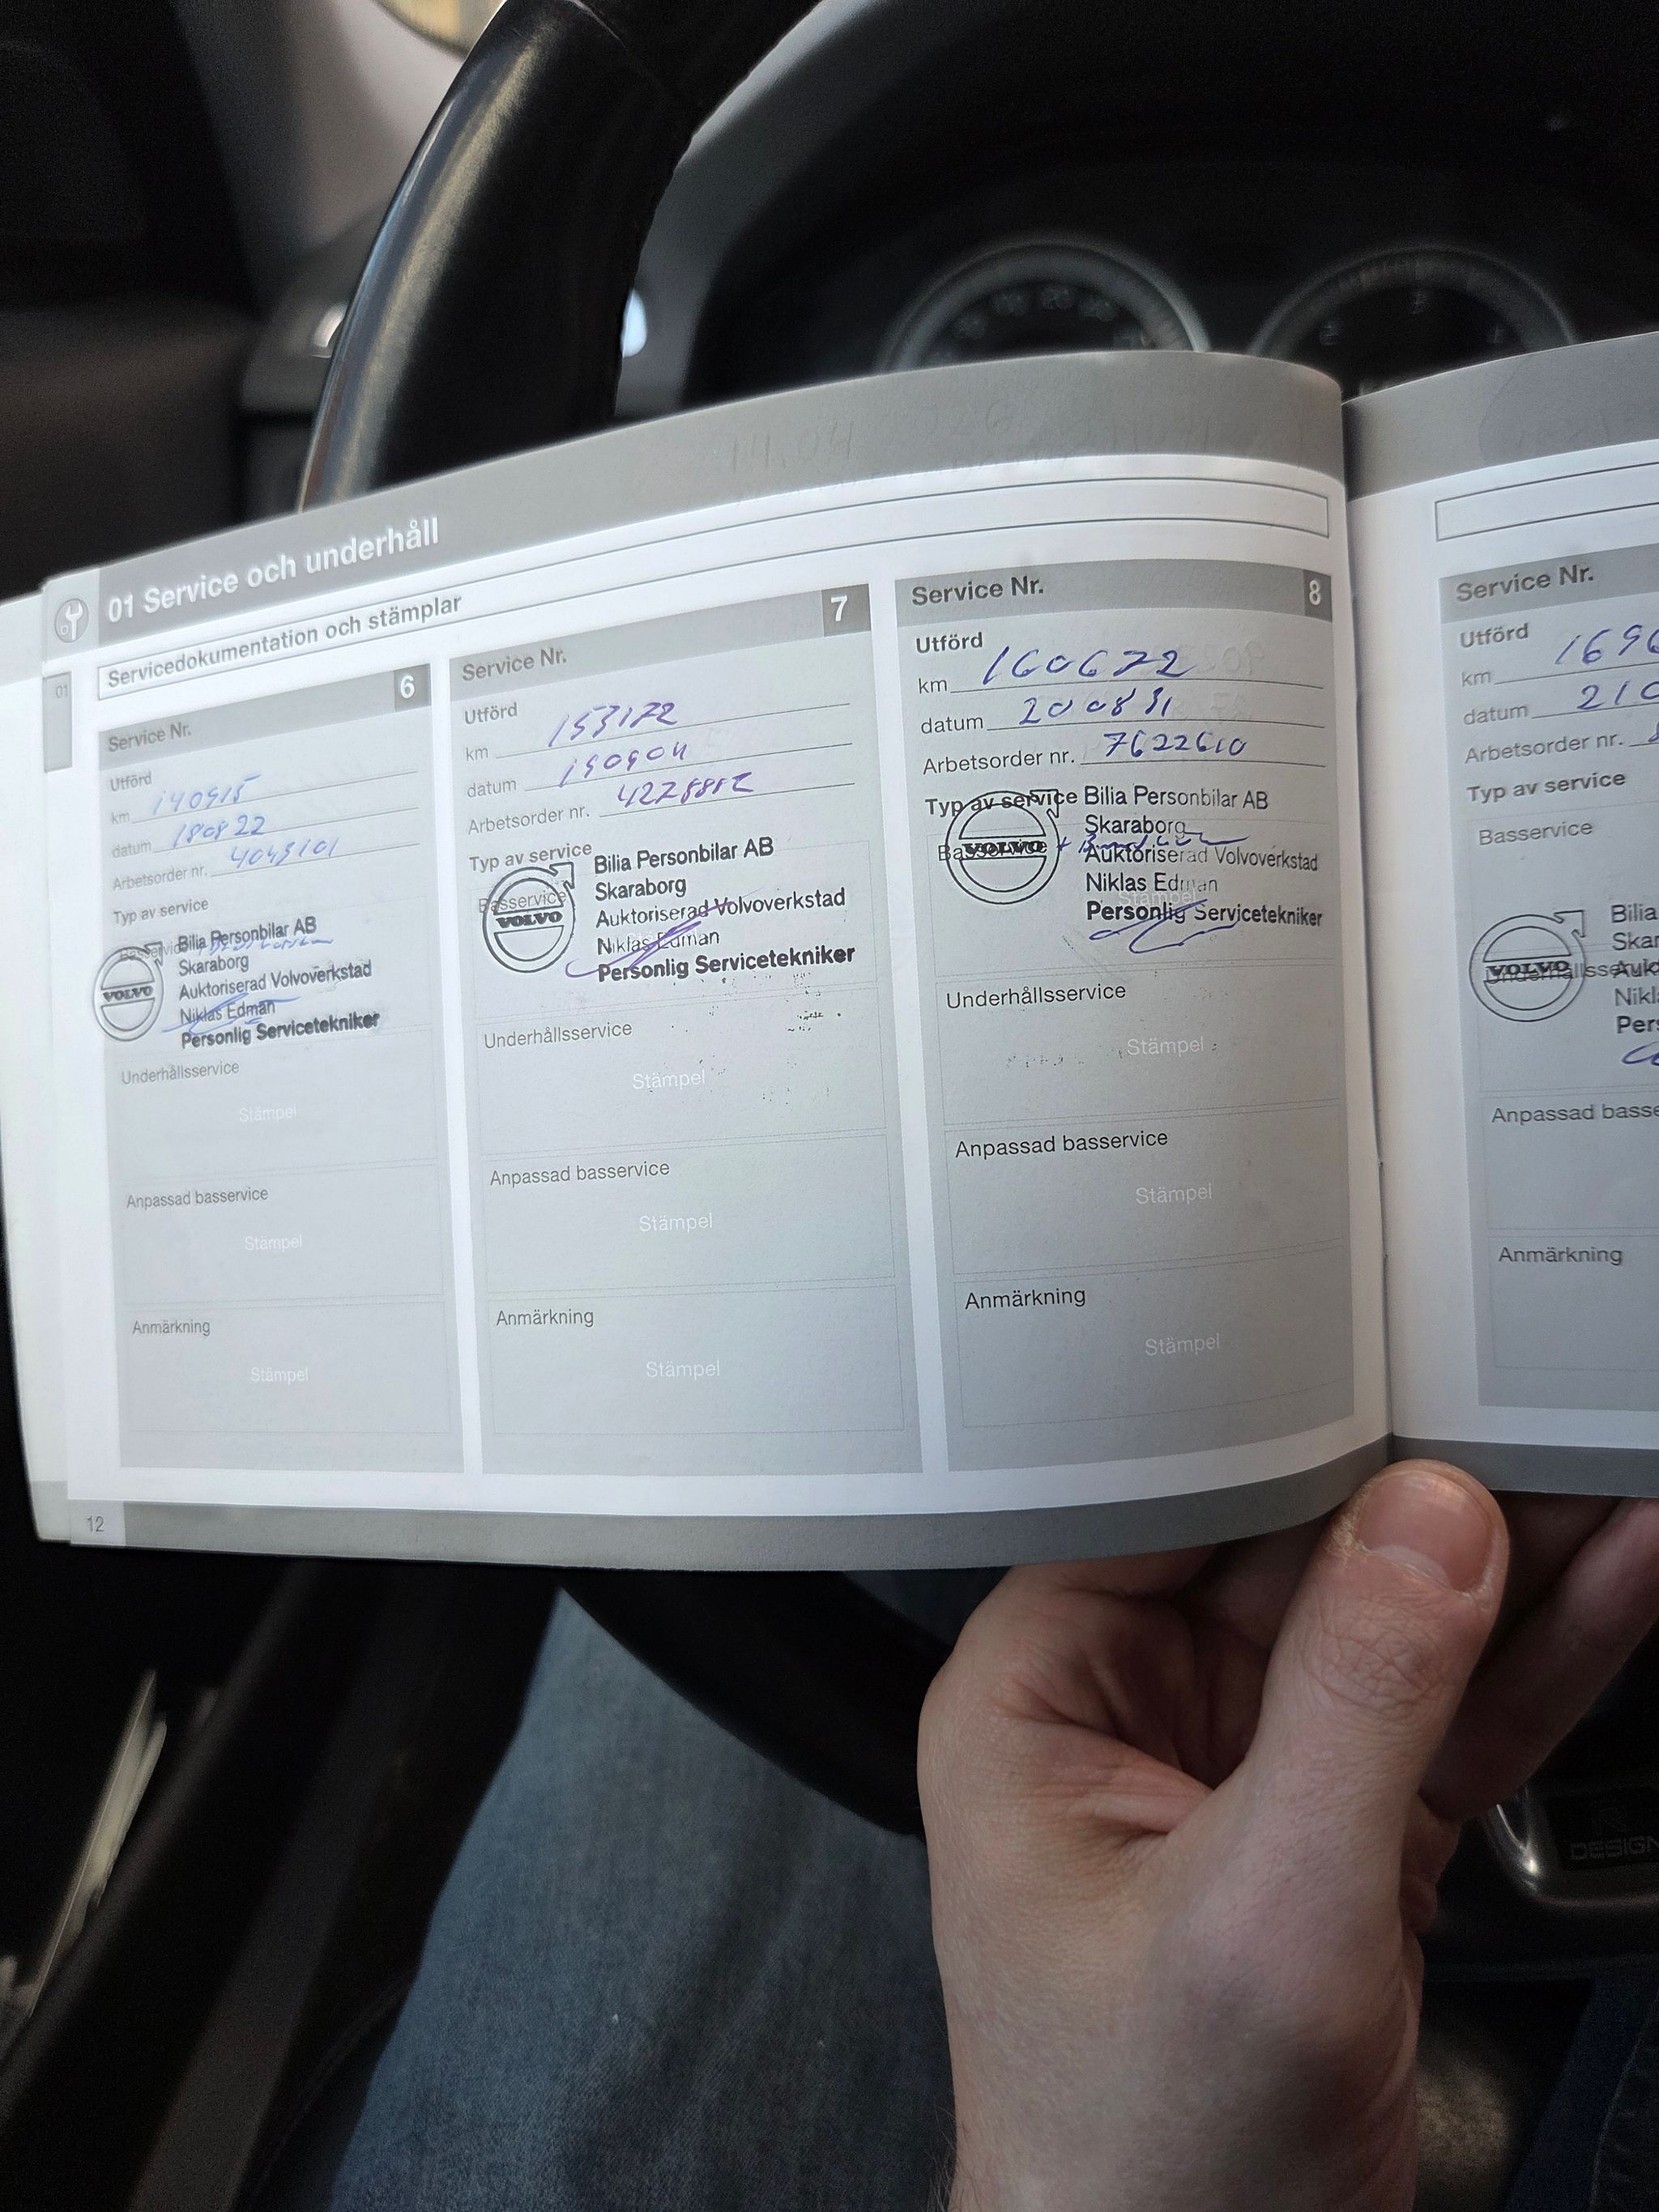 01 Service och underhåll
Servicedokumentation och stämplar
01
Service Nr. 6
Utförd
km 140915
datum 180822
Arbetsorder nr. 4049101
Typ av service
Bilia Personbilar AB
Skaraborg
Auktoriserad Volvoverkstad
VOLVO
Niklas Edman
Personlig Servicetekniker
Underhållsservice
Stämpel
Anpassad basservice
Stämpel
Anmärkning
Stämpel
Service Nr. 7
Utförd
km 153172
datum 190904
Arbetsorder nr.
Typ av service
Bilia Personbilar AB
Basservice
Skaraborg
VOLVO
Auktoriserad Volvoverkstad
Niklas Edman
Personlig Servicetekniker
Underhållsservice
Stämpel
Anpassad basservice
Stämpel
Anmärkning
Stämpel
Service Nr. 8
Utförd
km 160672
datum 200831
Arbetsorder nr. 7622610
Typ av service
Bilia Personbilar AB
Skaraborg
Basservice
VOLVO
Auktoriserad Volvoverkstad
Niklas Edman
Stämpel
Personlig Servicetekniker
Underhållsservice
Stämpel
Anpassad basservice
Stämpel
Anmärkning
Stämpel
12
Service Nr.
Utförd
km 169
datum 210
Arbetsorder nr.
Typ av service
Basservice
Bilia
Skar
VOLVO
Underhållsservice
Auk
Nikl
Pers
Anpassad basse
Anmärkning
DESIGN